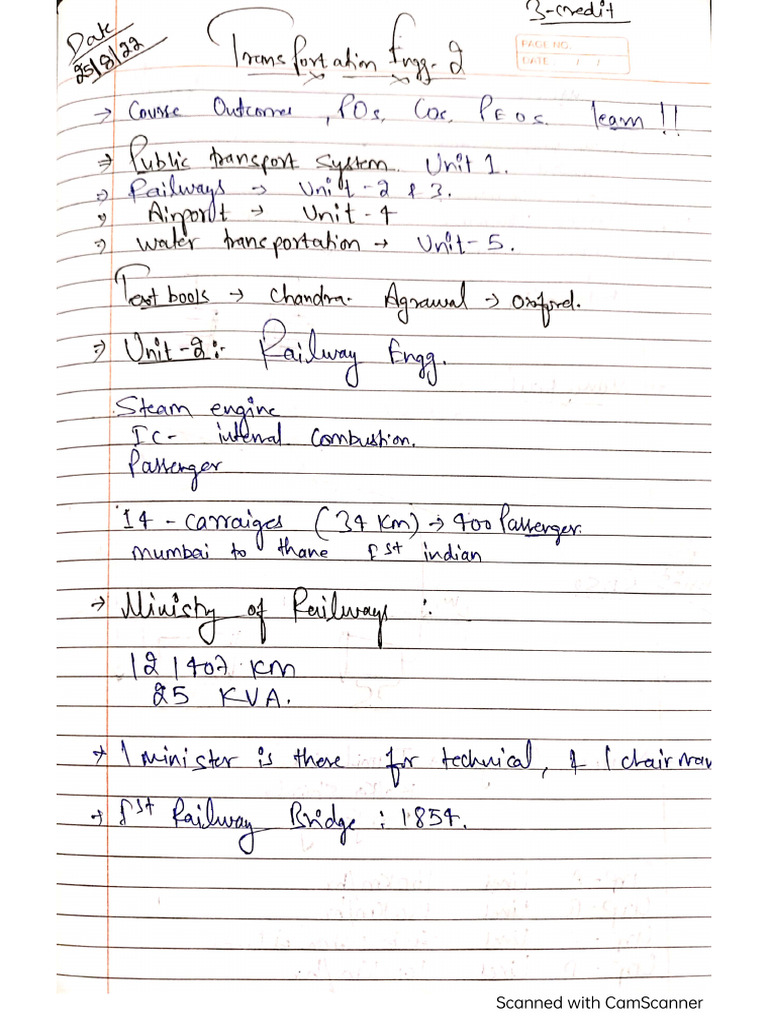 3-credit
Date
25/8/22
Transportation Engg-2
PAGE NO.
DATE / /
→ Course Outcomes, POs, COs, PEOs. learn!!
⇒ Public transport system Unit 1.
⇒ Railways → Unit-2 & 3.
⇒ Airport → Unit-4
⇒ water transportation → Unit-5.
Text books → Chandra. Agrawal → Oxford.
⇒ Unit-2:- Railway Engg.
Steam engine
IC- internal Combustion.
Passenger
14 - carraiges (34 Km) → 400 Passenger.
mumbai to thane 1st indian
→ Ministry of Railways :
121407 KM
25 KVA.
→ 1 minister is there for technical, & 1 chairman
→ 1st Railway Bridge : 1854.
Scanned with CamScanner